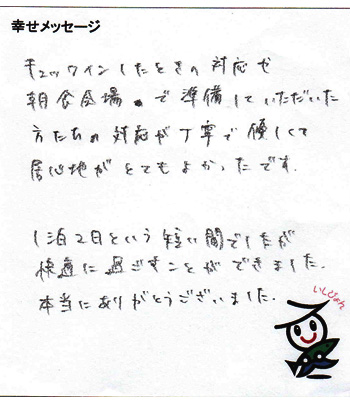 幸せメッセージ
チェックインしたときの対応や
朝食会場で準備していただいた
方たちの対応が丁寧で優しくて
居心地がとてもよかったです.
1泊2日という短い間でしたが
快適に過ごすことができました.
本当にありがとうございました.
いしぴょん